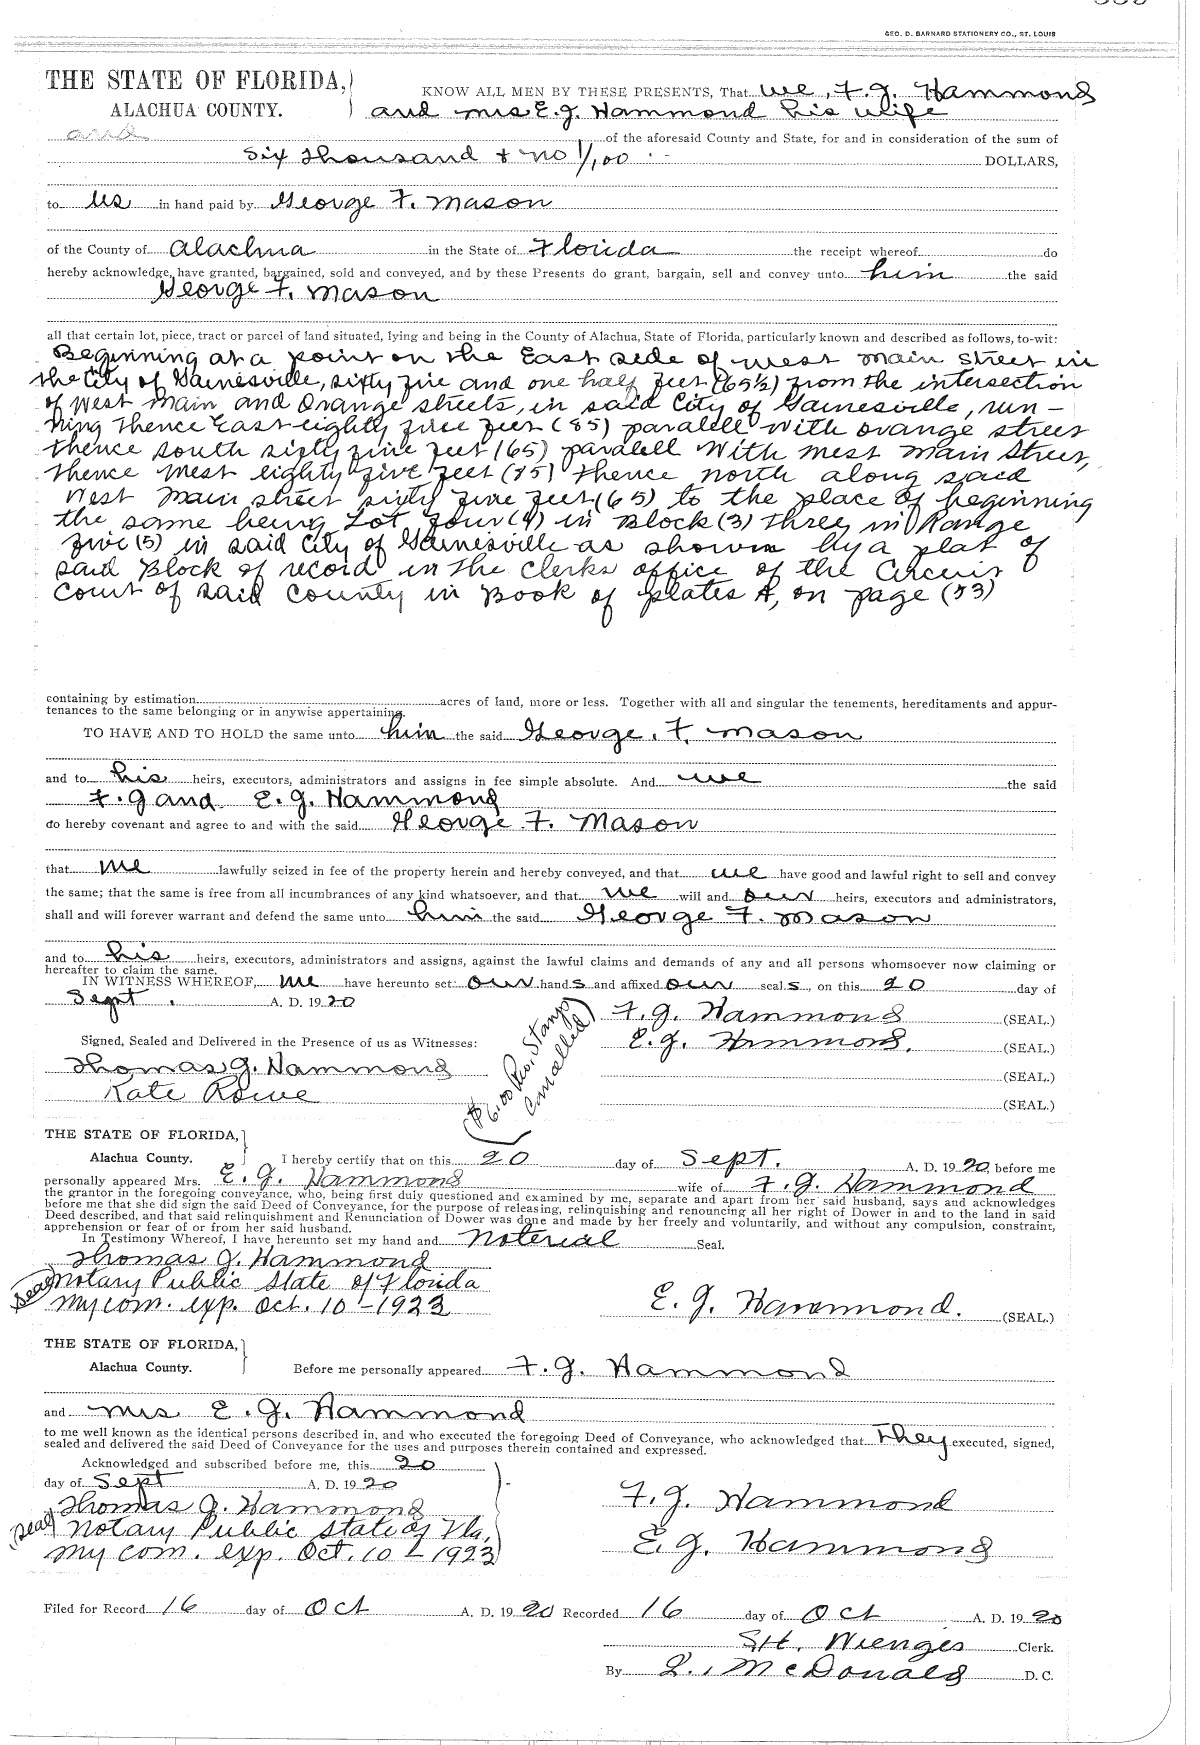 GEO. D. BARNARD STATIONERY CO., ST. LOUIS
THE STATE OF FLORIDA,
ALACHUA COUNTY.
KNOW ALL MEN BY THESE PRESENTS, That we, F. G. Hammond
and mrs E. G. Hammond his wife
and
of the aforesaid County and State, for and in consideration of the sum of
Six thousand + no 1/100 DOLLARS,
to us in hand paid by George F. Mason
of the County of Alachua in the State of Florida the receipt whereof do
hereby acknowledge, have granted, bargained, sold and conveyed, and by these Presents do grant, bargain, sell and convey unto him the said
George F. Mason
all that certain lot, piece, tract or parcel of land situated, lying and being in the County of Alachua, State of Florida, particularly known and described as follows, to-wit:
Beginning at a point on the East side of west main street in
the City of Gainesville, sixty five and one half feet (65½) from the intersection
of West Main and Orange streets, in said City of Gainesville, run-
ning thence East eighty five feet (85) paralell with orange street
thence south sixty five feet (65) paralell With West Main Street,
thence West eighty five feet (85) thence north along said
West Main street sixty five feet (65) to the place of beginning
the same being Lot four (4) in Block (3) three in Range
five (5) in said City of Gainesville as shown by a plat of
said Block of record in the Clerks office of the Circuit
Court of said County in Book of plates A, on page (53)
containing by estimation acres of land, more or less. Together with all and singular the tenements, hereditaments and appur-
tenances to the same belonging or in anywise appertaining.
TO HAVE AND TO HOLD the same unto him the said George. F. Mason
and to his heirs, executors, administrators and assigns in fee simple absolute. And we the said
F. G and E. G. Hammond
do hereby covenant and agree to and with the said George F. Mason
that we lawfully seized in fee of the property herein and hereby conveyed, and that we have good and lawful right to sell and convey
the same; that the same is free from all incumbrances of any kind whatsoever, and that we will and our heirs, executors and administrators,
shall and will forever warrant and defend the same unto him the said George F. Mason
and to his heirs, executors, administrators and assigns, against the lawful claims and demands of any and all persons whomsoever now claiming or
hereafter to claim the same.
IN WITNESS WHEREOF, we have hereunto set our hand s and affixed our seal s, on this 20 day of
Sept. A. D. 1920
F. G. Hammond (SEAL.)
Signed, Sealed and Delivered in the Presence of us as Witnesses:
E. G. Hammond. (SEAL.)
Thomas G. Hammond (SEAL.)
Kate Rowe (SEAL.)
($6.00 Rev. Stamps
Cancelled)
THE STATE OF FLORIDA,
Alachua County. I hereby certify that on this 20 day of Sept. A. D. 1920, before me
personally appeared Mrs. E. G. Hammond wife of F. G. Hammond
the grantor in the foregoing conveyance, who, being first duly questioned and examined by me, separate and apart from her said husband, says and acknowledges
before me that she did sign the said Deed of Conveyance, for the purpose of releasing, relinquishing and renouncing all her right of Dower in and to the land in said
Deed described, and that said relinquishment and Renunciation of Dower was done and made by her freely and voluntarily, and without any compulsion, constraint,
apprehension or fear of or from her said husband.
In Testimony Whereof, I have hereunto set my hand and Noterial Seal.
Thomas G. Hammond
(Seal) Notary Public State of Florida
My com. exp. Oct. 10-1923
E. G. Hammond. (SEAL.)
THE STATE OF FLORIDA,
Alachua County. Before me personally appeared F. G. Hammond
and mrs E. G. Hammond
to me well known as the identical persons described in, and who executed the foregoing Deed of Conveyance, who acknowledged that they executed, signed,
sealed and delivered the said Deed of Conveyance for the uses and purposes therein contained and expressed.
Acknowledged and subscribed before me, this 20
day of Sept A. D. 1920
Thomas G. Hammond
(Seal) Notary Public State of Fla,
My com. exp. Oct. 10-1923
F. G. Hammond
E. G. Hammond
Filed for Record 16 day of Oct A. D. 1920 Recorded 16 day of Oct A. D. 1920
S.H. Wienges Clerk.
By McDonald D. C.